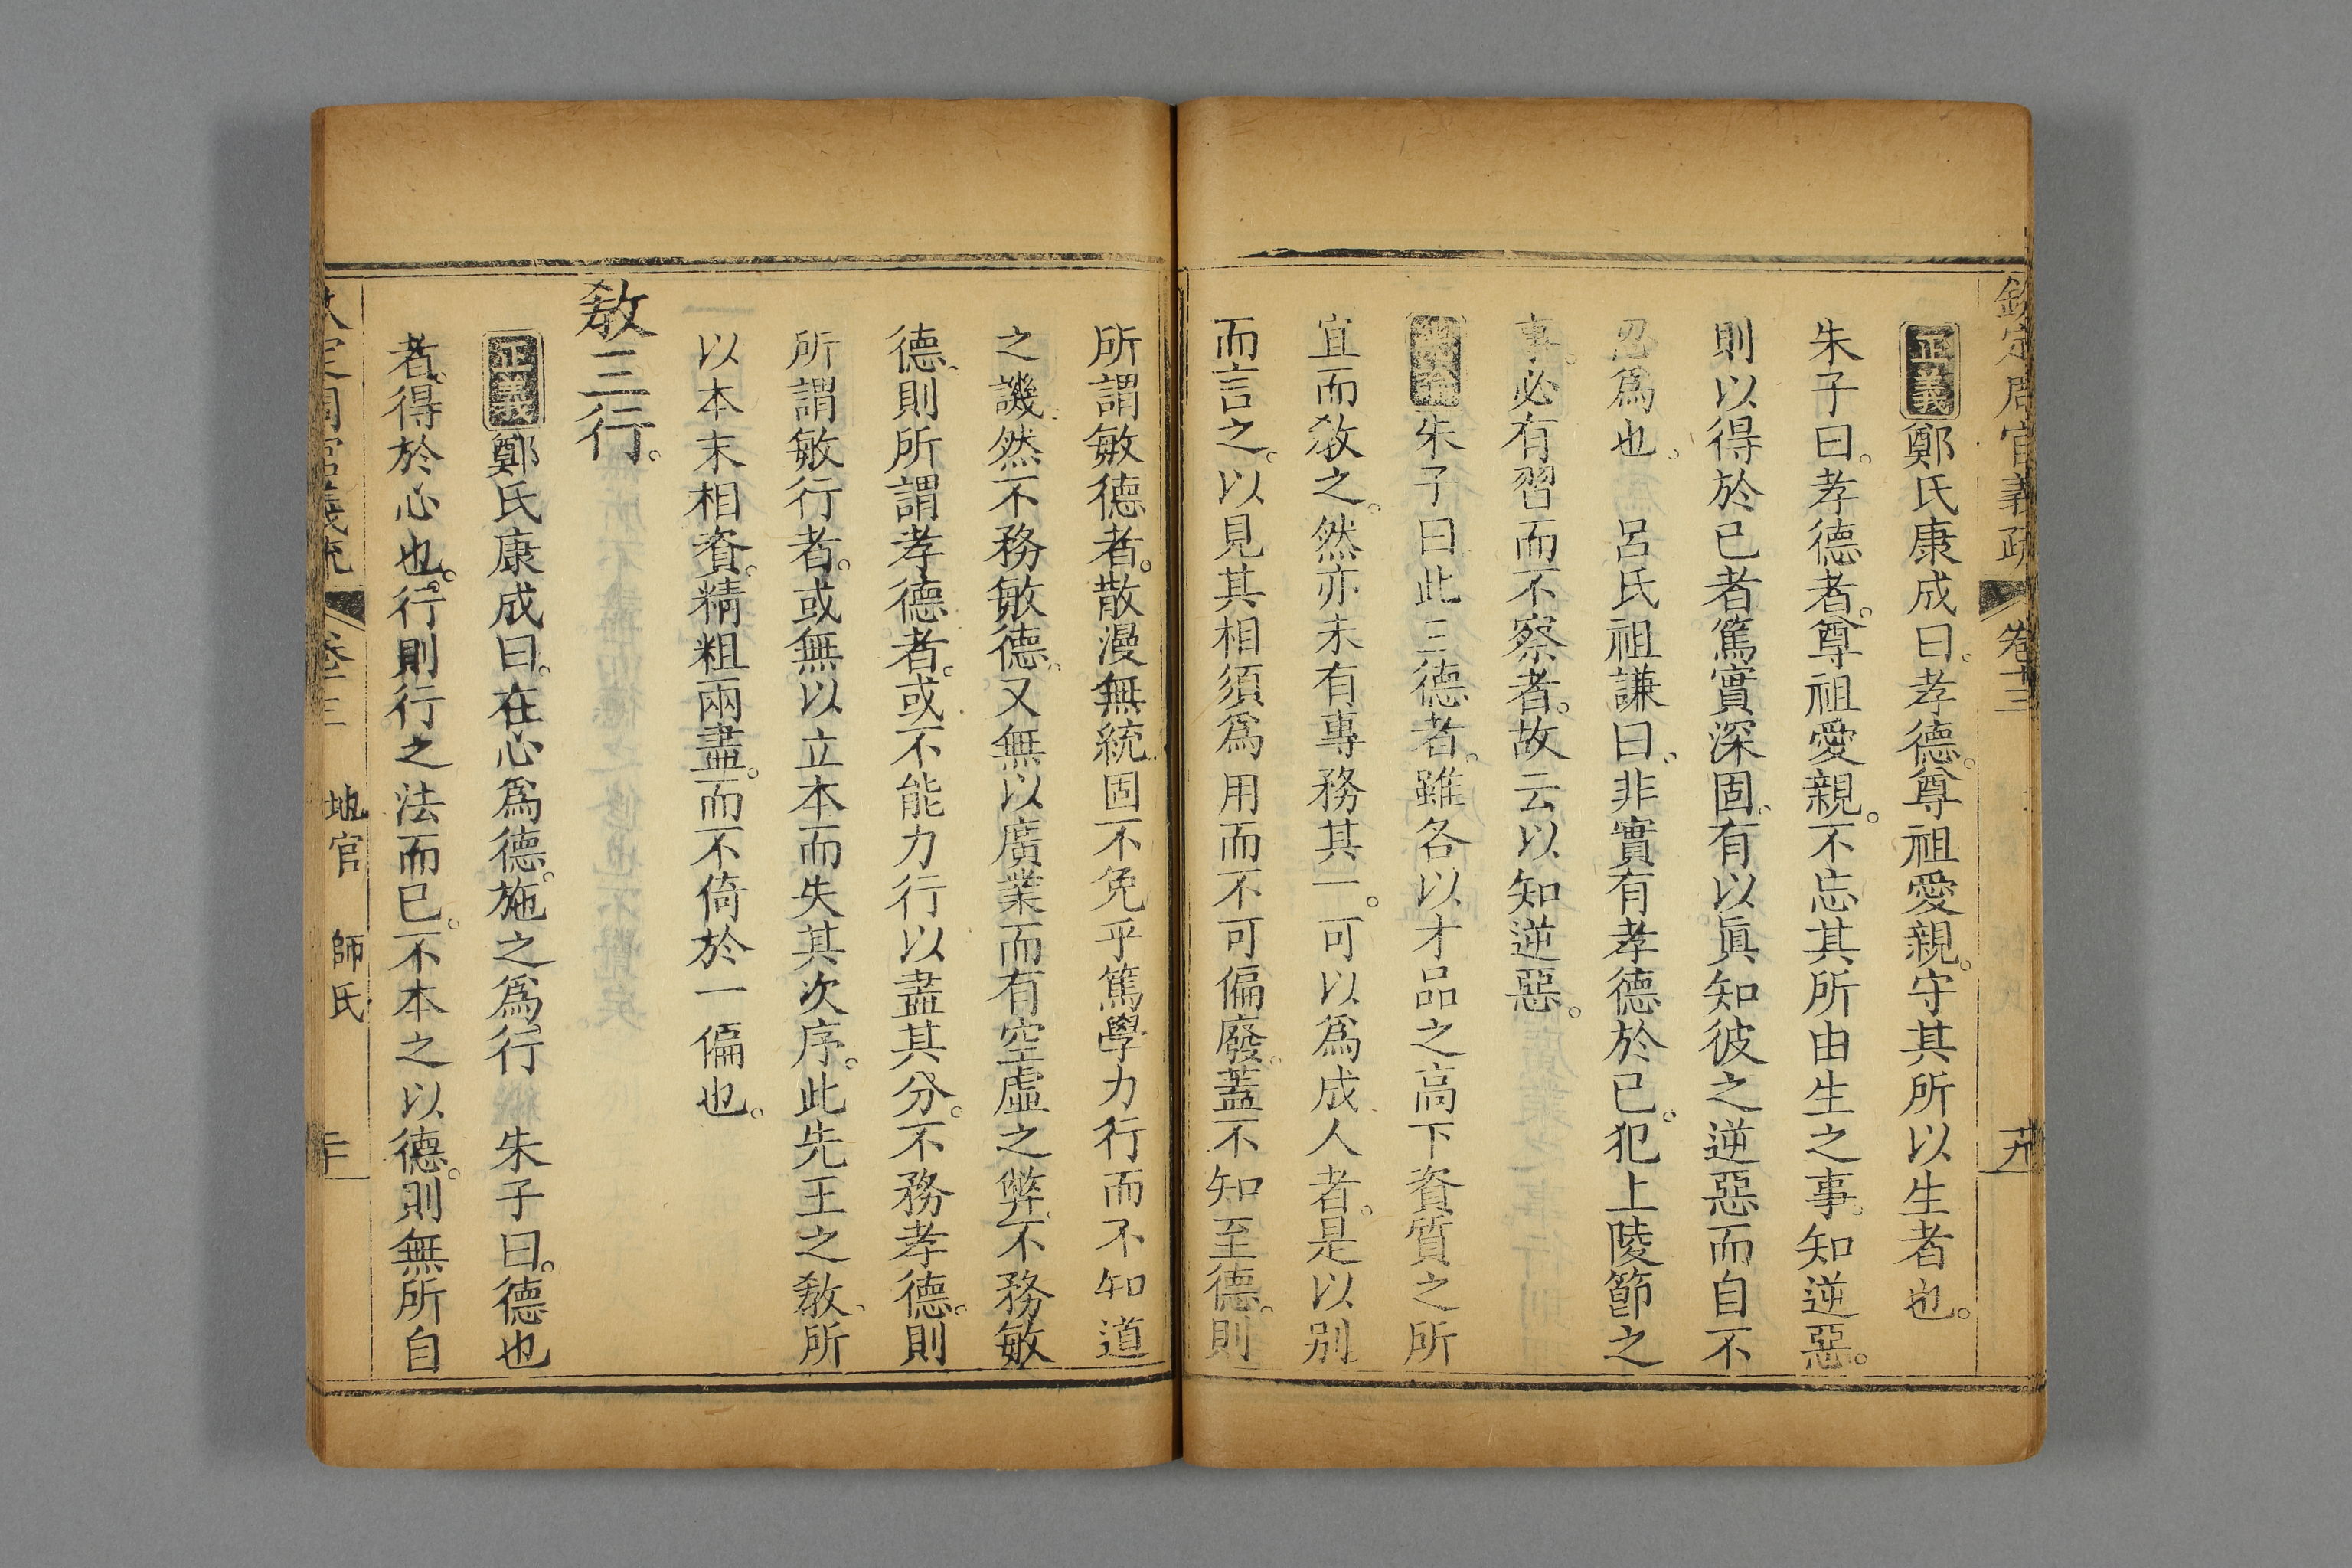 欽定周官義疏 卷十三
正義鄭氏康成曰。孝德。尊祖愛親。守其所以生者也。
朱子曰。孝德者。尊祖愛親。不忘其所由生之事。知逆惡。
則以得於已者篤實深固。有以眞知彼之逆惡而自不
忍爲也。 呂氏祖謙曰。非實有孝德於已。犯上陵節之
事。必有習而不察者。故云以知逆惡。
朱子曰此三德者。雖各以才品之高下資質之所
宜而敎之。然亦未有專務其一。可以爲成人者。是以別
而言之。以見其相須爲用而不可偏廢。蓋不知至德。則
所謂敏德者。散漫無統固不免乎篤學力行而不知道
之譏。然不務敏德。又無以廣業而有空虛之弊。不務敏
德。則所謂孝德者。或不能力行以盡其分。不務孝德。則
所謂敏行者。或無以立本而失其次序。此先王之敎。所
以本末相資。精粗兩盡。而不倚於一偏也。
敎三行。
正義鄭氏康成曰。在心爲德。施之爲行 朱子曰。德也
者。得於心也。行則行之法而已。不本之以德。則無所自
地官 師氏